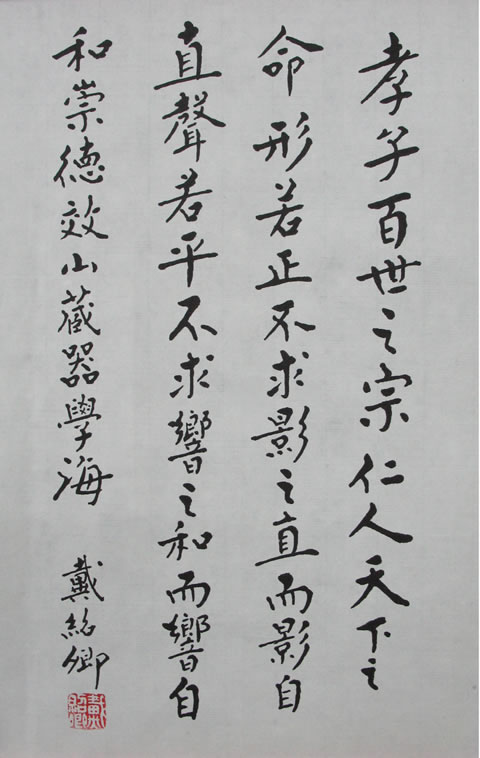 孝子百世之宗仁人天下之
命形若正不求影之直而影自
直聲若平不求響之和而響自
和崇德效山藏器學海
戴紹卿